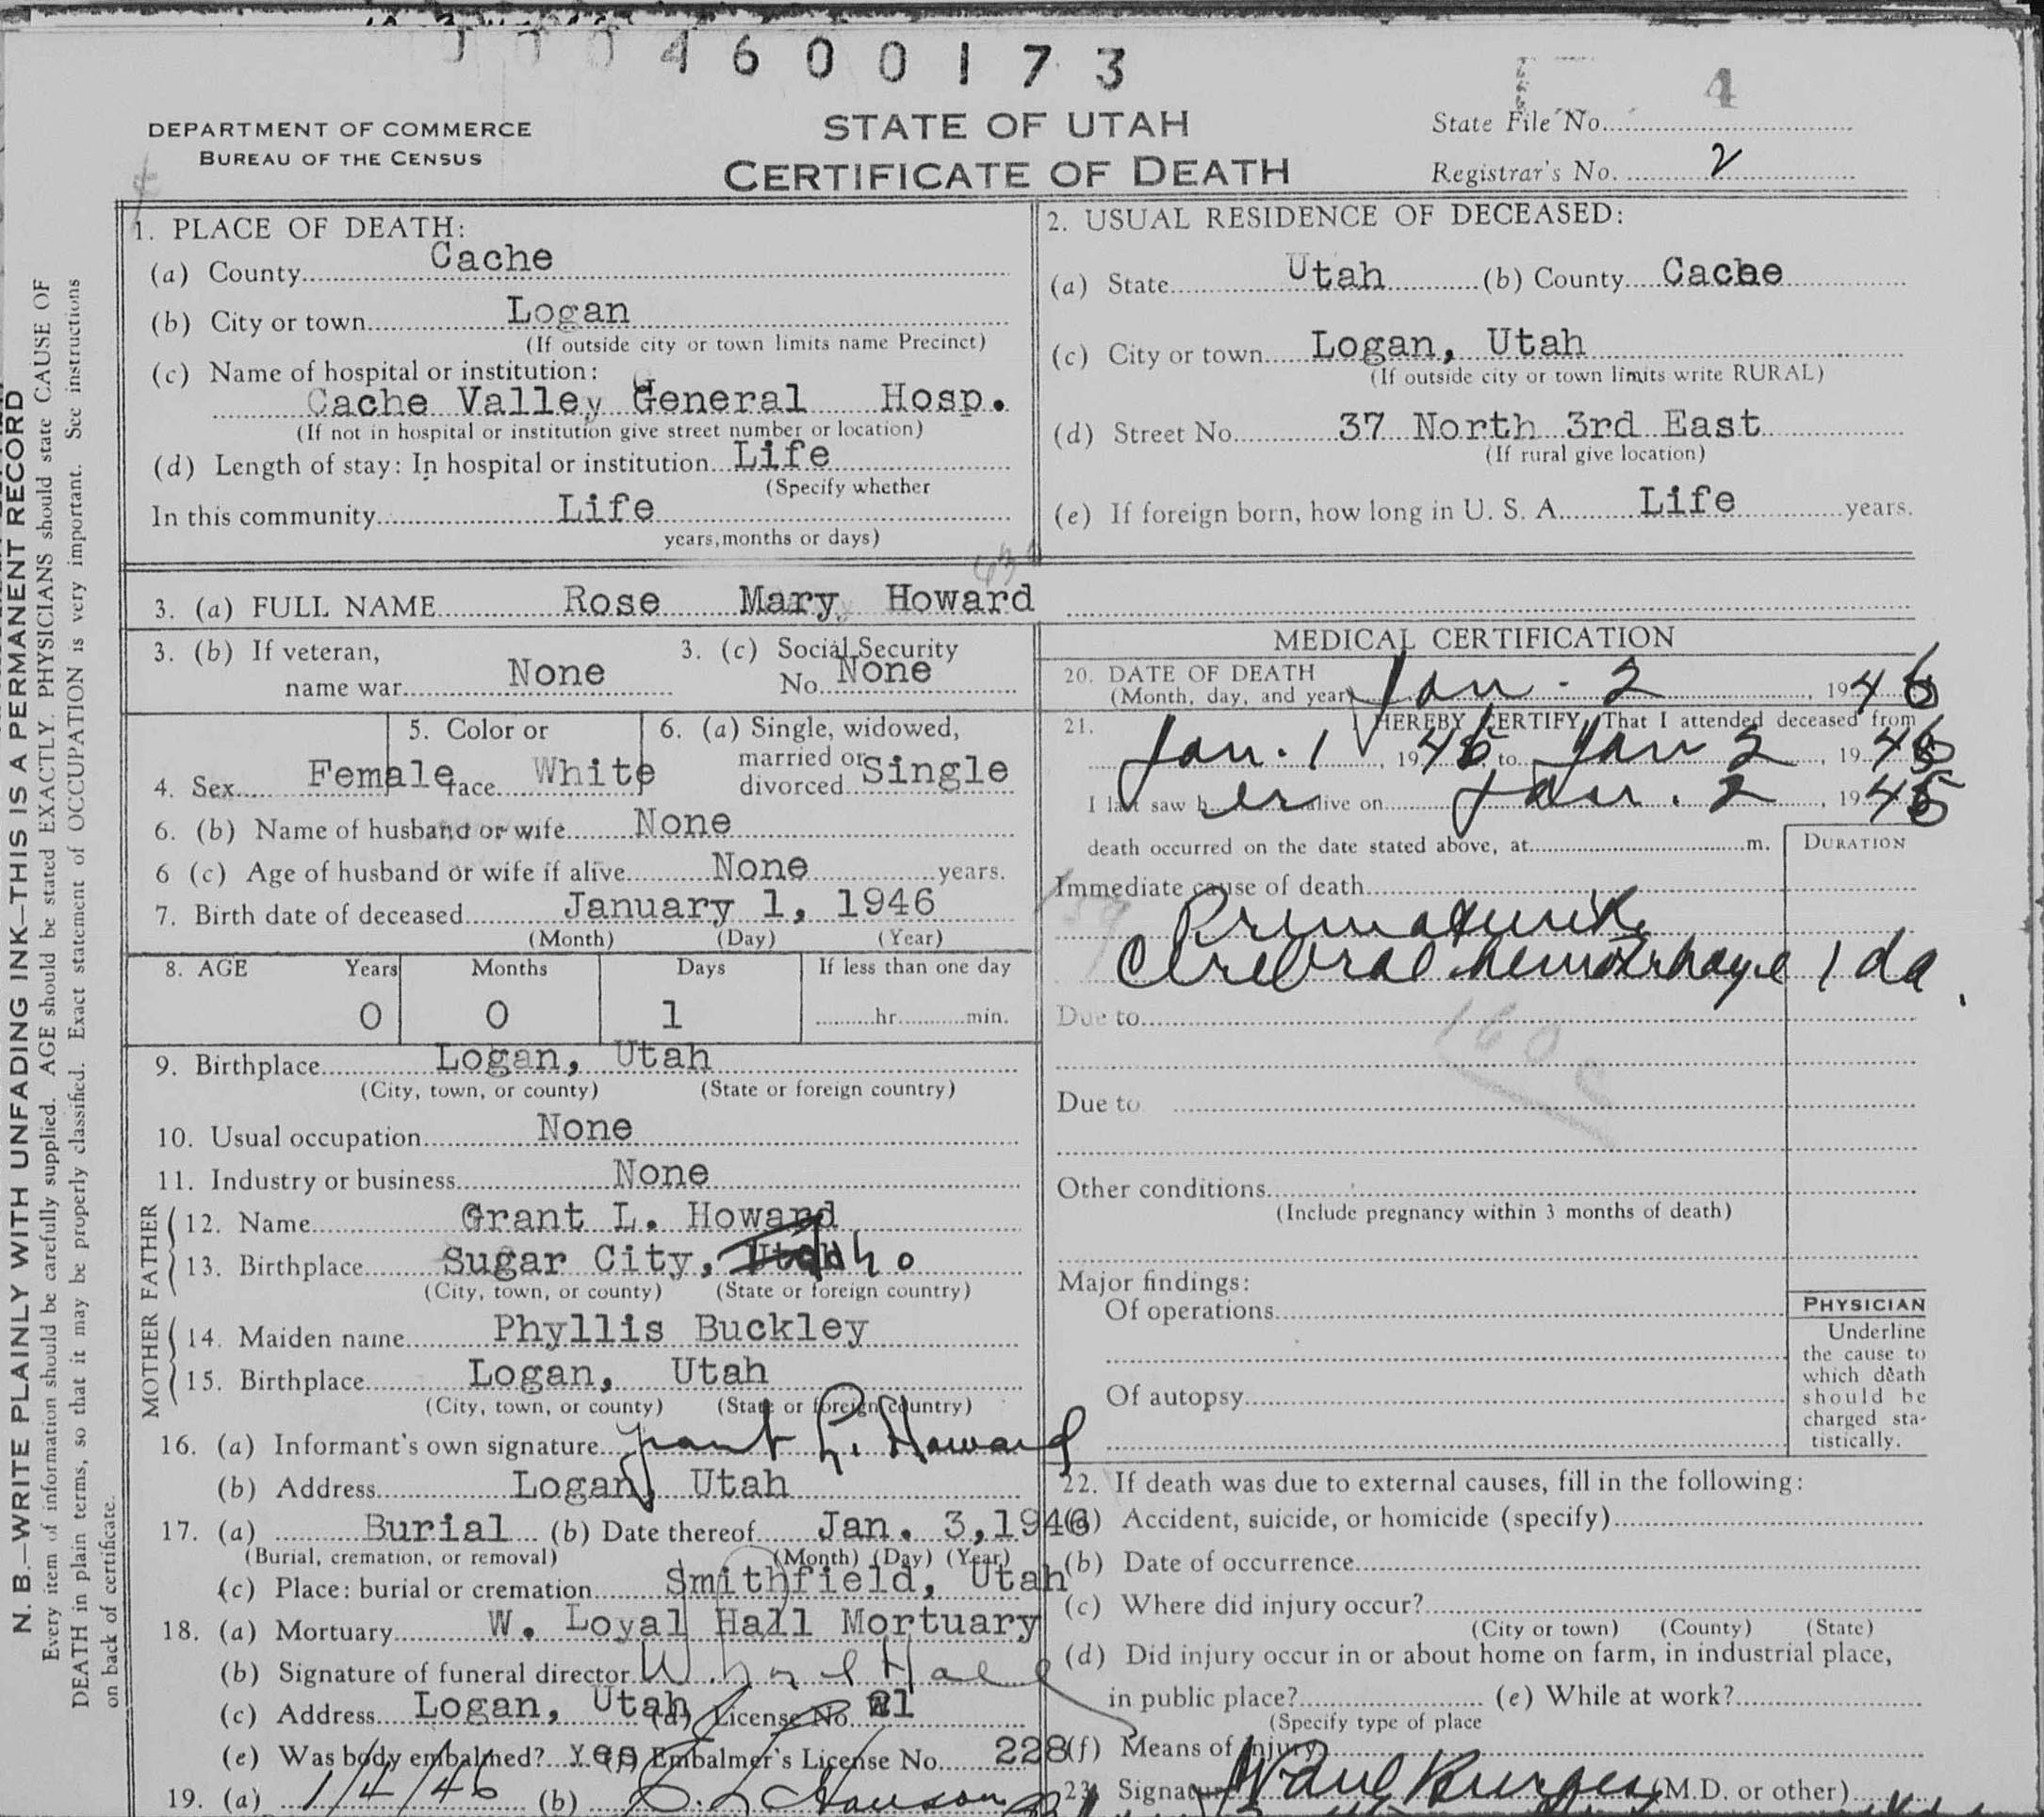 4600173
DEPARTMENT OF COMMERCE
BUREAU OF THE CENSUS
STATE OF UTAH
CERTIFICATE OF DEATH
State File No. 4
Registrar's No. 2
N. B.—WRITE PLAINLY WITH UNFADING INK—THIS IS A PERMANENT RECORD
Every item of information should be carefully supplied. AGE should be stated EXACTLY. PHYSICIANS should state CAUSE OF
DEATH in plain terms, so that it may be properly classified. Exact statement of OCCUPATION is very important. See instructions
on back of certificate.
1. PLACE OF DEATH:
(a) County Cache
(b) City or town Logan
(If outside city or town limits name Precinct)
(c) Name of hospital or institution:
Cache Valley General Hosp.
(If not in hospital or institution give street number or location)
(d) Length of stay: In hospital or institution Life
(Specify whether
In this community Life
years, months or days)
2. USUAL RESIDENCE OF DECEASED:
(a) State Utah (b) County Cache
(c) City or town Logan, Utah
(If outside city or town limits write RURAL)
(d) Street No. 37 North 3rd East
(If rural give location)
(e) If foreign born, how long in U. S. A. Life years.
3. (a) FULL NAME Rose Mary Howard
3. (b) If veteran,
name war None
3. (c) Social Security
No. None
4. Sex Female
5. Color or
race White
6. (a) Single, widowed,
married or
divorced Single
6. (b) Name of husband or wife None
6 (c) Age of husband or wife if alive None years.
7. Birth date of deceased January 1, 1946
(Month) (Day) (Year)
8. AGE Years Months Days If less than one day
0 0 1 hr. min.
9. Birthplace Logan, Utah
(City, town, or county) (State or foreign country)
10. Usual occupation None
11. Industry or business None
FATHER
12. Name Grant L. Howard
13. Birthplace Sugar City, Idaho
(City, town, or county) (State or foreign country)
MOTHER
14. Maiden name Phyllis Buckley
15. Birthplace Logan, Utah
(City, town, or county) (State or foreign country)
16. (a) Informant's own signature Grant L. Howard
(b) Address Logan, Utah
17. (a) Burial (b) Date thereof Jan. 3, 1946
(Burial, cremation, or removal) (Month) (Day) (Year)
(c) Place: burial or cremation Smithfield, Utah
18. (a) Mortuary W. Loyal Hall Mortuary
(b) Signature of funeral director W. Loyal Hall
(c) Address Logan, Utah (d) License No. 21
(e) Was body embalmed? Yes (f) Embalmer's License No. 228
19. (a) 1/4/46 (b)
MEDICAL CERTIFICATION
20. DATE OF DEATH
(Month, day, and year) Jan - 2, 1946
21. I HEREBY CERTIFY, That I attended deceased from
Jan. 1, 1946 to Jan 2, 1946
I last saw her alive on Jan. 2, 1946
death occurred on the date stated above, at m.
DURATION
Immediate cause of death
Prematurity
Cerebral hemorrhage 1 da.
Due to
Due to
Other conditions
(Include pregnancy within 3 months of death)
Major findings:
Of operations
Of autopsy
PHYSICIAN
Underline
the cause to
which death
should be
charged sta-
tistically.
22. If death was due to external causes, fill in the following:
(a) Accident, suicide, or homicide (specify)
(b) Date of occurrence
(c) Where did injury occur?
(City or town) (County) (State)
(d) Did injury occur in or about home on farm, in industrial place,
in public place? (e) While at work?
(Specify type of place
(f) Means of injury
23. Signature (M.D. or other)